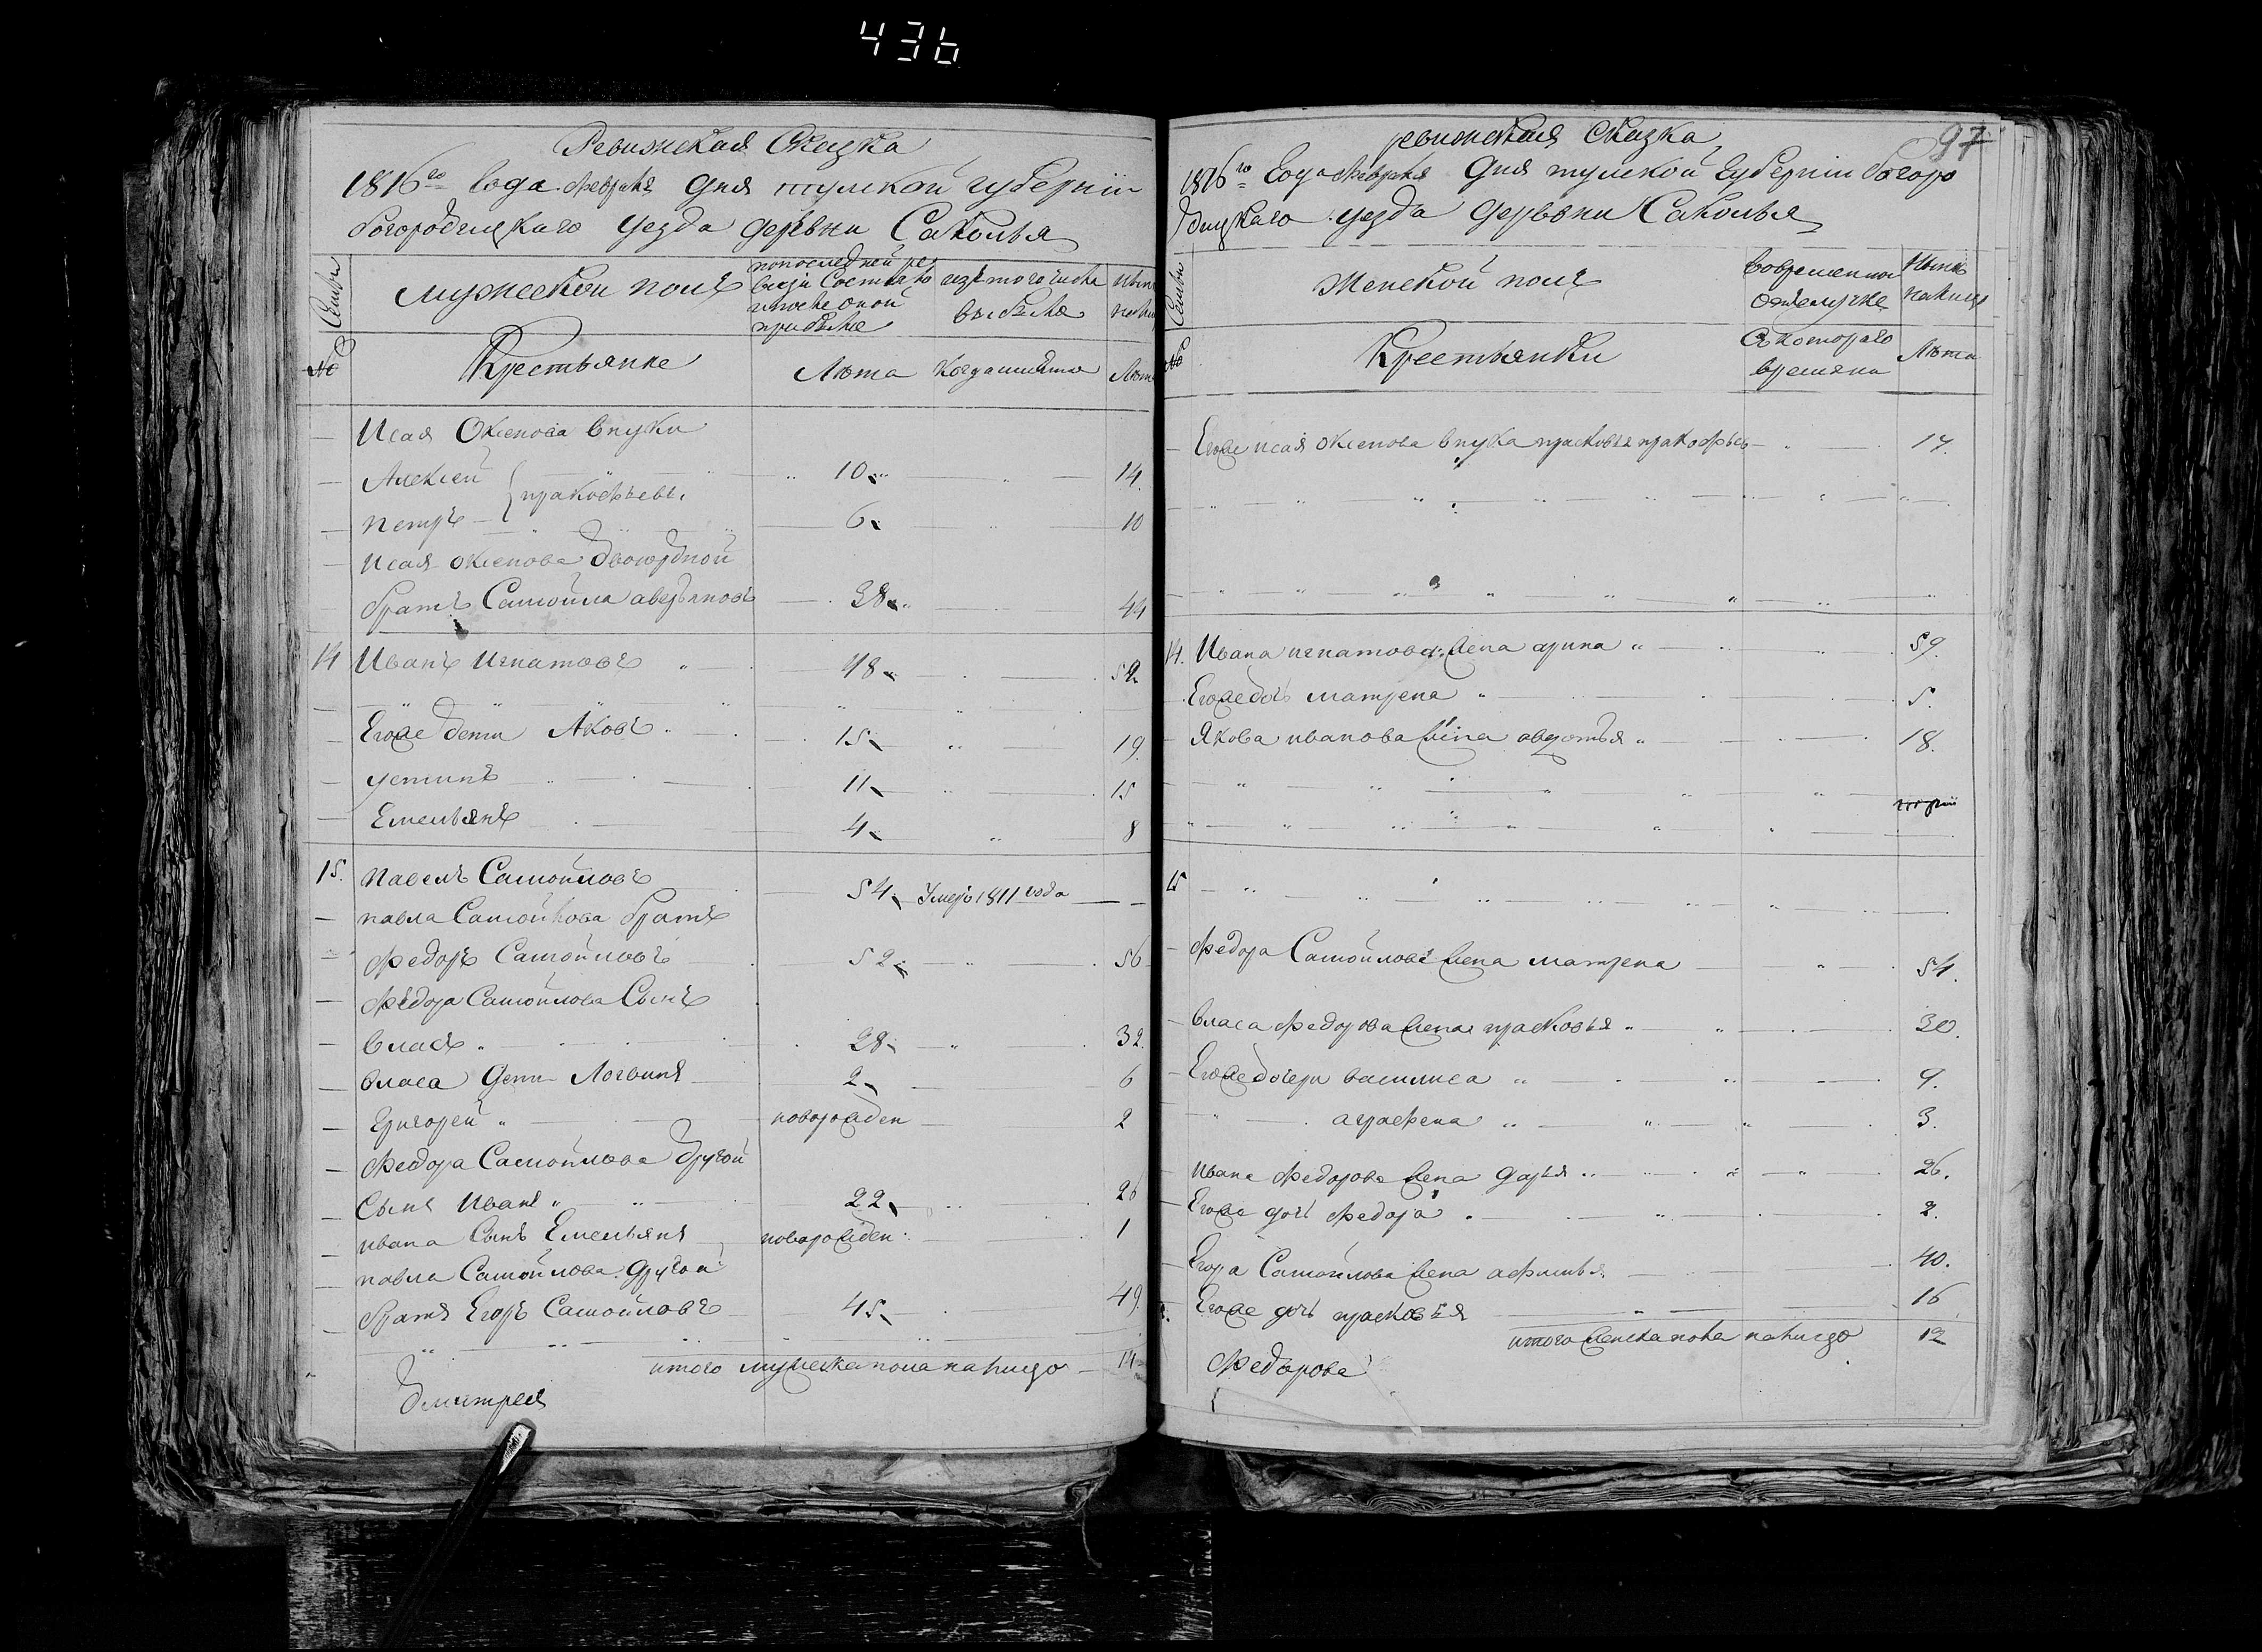 436
Ревижская Сказка
1816го года февраля дня тулской губернiи
богородицкаго уезда деревни Саколья
Семьи
мужескои полъ
попоследней ре
визiи Состояло
и после оной
прибыло
изъ того числа
выбыло
ныне
№
Крестьяне
Лѣта
когда имянно
Лѣта
Исая Оксенова внуки
Алексей
пракофьевы
10
14
петръ
6
10
исая оксенова двоюрдной
братъ Самойла аверьяновъ
38
44
14 Иванъ Игнатовъ
48
52
Егоже дети Яковъ
15
19
устинъ
11
15
Емельянъ
4
8
15. павелъ Самойловъ
54
Умеръ 1811 года
павла Самойлова братъ
федоръ Самойловъ
52
56
федора Самойлова Сынъ
власъ
28
32
власа дети Логвинъ
2
6
Григорей
новорожден
2
федора Самойлова другой
Сынъ Иванъ
22
26
ивана Сынъ Емельянъ
новорожден
1
павла Самойлова другой
братъ Егоръ Самойловъ
45
49
итого мужеска пола налицо
14
дмитрея
97
ревижская Сказка
1816го Года февраля дня тулской Губернiи богоро
дицкаго уезда деревни Саколья
Семьи
Женской полъ
вовременной
отлучке
Ныне
налицо
№
Крестьянки
Скоторого
времяни
Лѣта
Егоже исая оксенова внука прасковья пракофьева
17.
14. Ивана игнатова жена арина
59.
Егоже дочь матрена
5.
Якова иванова жена авдотья
18.
15
федора Самойлова жена матрена
54.
власа федорова жена прасковья
30.
Егоже дочери василиса
9.
аграфена
3.
ивана федорова жена дарья
26.
Егоже дочь федора
2.
Егора Самойлова жена афимья
40.
Егоже дочь прасковья
16
итого женска пола налицо
12
федорова